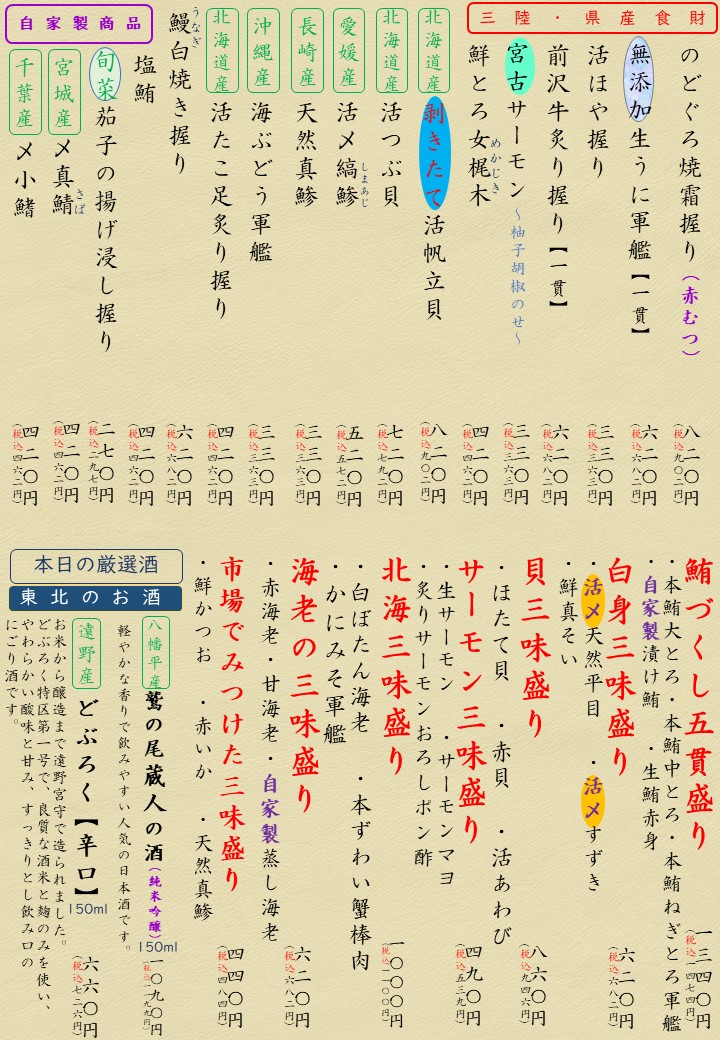 三陸・県産食財
のどぐろ焼霜握り(赤むつ)
八二〇円
(税込九〇二円)
無添加生うに軍艦【一貫】
六二〇円
(税込六八二円)
活ほや握り
三三〇円
(税込三六三円)
前沢牛炙り握り【一貫】
六二〇円
(税込六八二円)
宮古サーモン〜柚子胡椒のせ〜
三三〇円
(税込三六三円)
鮮とろ女梶木
めかじき
四二〇円
(税込四六二円)
北海道産
剥きたて活帆立貝
八二〇円
(税込九〇二円)
北海道産
活つぶ貝
七二〇円
(税込七九二円)
愛媛産
活〆縞鯵
しまあじ
五二〇円
(税込五七二円)
長崎産
天然真鯵
三三〇円
(税込三六三円)
沖縄産
海ぶどう軍艦
三三〇円
(税込三六三円)
北海道産
活たこ足炙り握り
四二〇円
(税込四六二円)
鰻白焼き握り
うなぎ
六二〇円
(税込六八二円)
自家製商品
塩鮪
四二〇円
(税込四六二円)
旬菜茄子の揚げ浸し握り
二七〇円
(税込二九七円)
宮城産
〆真鯖
さば
四二〇円
(税込四六二円)
千葉産
〆小鰭
四二〇円
(税込四六二円)
鮪づくし五貫盛り
・本鮪大とろ・本鮪中とろ・本鮪ねぎとろ軍艦
自家製漬け鮪 ・生鮪赤身
一三四〇円
(税込一四七四円)
白身三味盛り
・活〆天然平目 ・活〆すずき
・鮮真そい
六二〇円
(税込六八二円)
貝三味盛り
・ほたて貝 ・赤貝 ・活あわび
八六〇円
(税込九四六円)
サーモン三味盛り
・生サーモン ・サーモンマヨ
・炙りサーモンおろしポン酢
四九〇円
(税込五三九円)
北海三味盛り
・白ぼたん海老 ・本ずわい蟹棒肉
・かにみそ軍艦
一〇〇〇円
(税込一一〇〇円)
海老の三味盛り
・赤海老・甘海老・自家製蒸し海老
六二〇円
(税込六八二円)
市場でみつけた三味盛り
・鮮かつお ・赤いか ・天然真鯵
四四〇円
(税込四八四円)
本日の厳選酒
東北のお酒
八幡平産
鷲の尾蔵人の酒(純米吟醸)
150ml
一〇九〇円
(税込一一九九円)
軽やかな香りで飲みやすい人気の日本酒です。
遠野産
どぶろく【辛口】
150ml
六六〇円
(税込七二六円)
お米から醸造まで遠野宮守で造られました。
どぶろく特区第一号で、良質な酒米と麹のみを使い、
やわらかい酸味と甘み、すっきりとし飲み口の
にごり酒です。